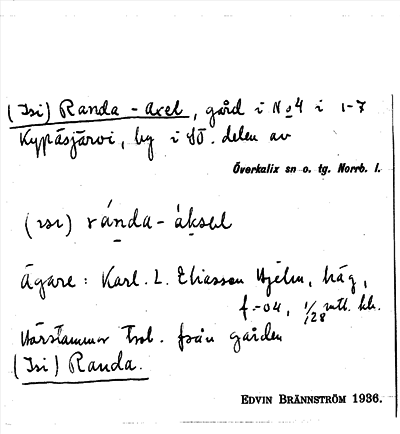 (Isi) Randa - Axel, gård i No 4 i 1-7
Kypäsjärvi, by i SO. delen av
Överkalix sn o. tg. Norrb. l.
(ısı) ránda-àksəl
Ägare: Karl. L. Eliasson Hjelm, häg,
f.-04, 1/128 mtl. kh.
Härstammar trol. från gården
(Isi) Randa.
EDVIN BRÄNNSTRÖM 1936.